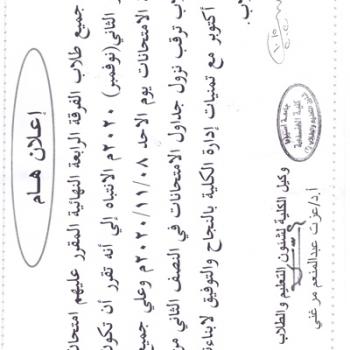 إعلان هام
جميع طلاب الفرقة الرابعة النهائية المقرر عليهم امتحان
ر الثاني(نوفمبر) ٢٠٢٠م الانتباه إلي أنه تقرر أن تكون
ة الامتحانات يوم الاحد ٢٠٢٠/١١/٠٨م وعلي جميع
لاب ترقب نزول جداول الامتحانات في النصف الثاني من
أكتوبر مع تمنيات إدارة الكلية بالنجاح والتوفيق لابناء
لاب.
وكيل الكلية لشئون التعليم والطلاب
أ.د/عزت عبدالمنعم مرغني
جامعة أسيوط
كلية الهندسة